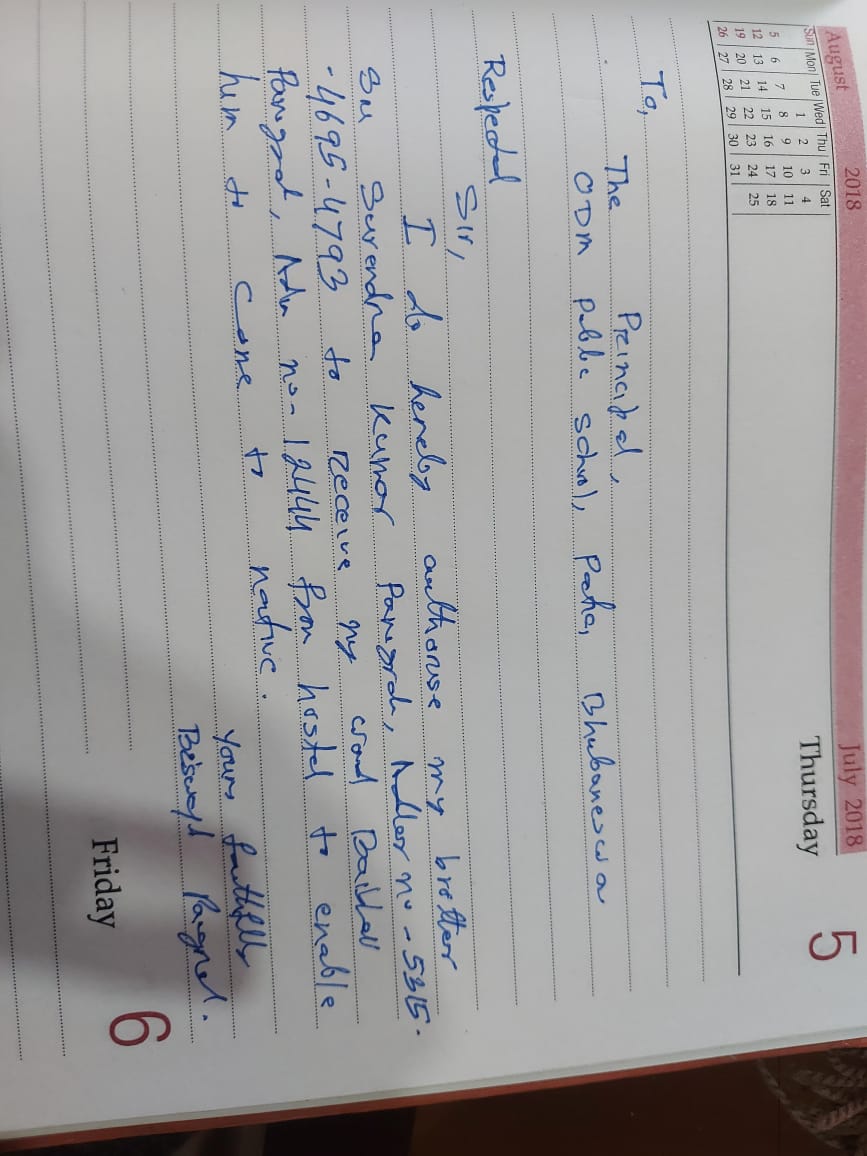 August 2018
Sun Mon Tue Wed Thu Fri Sat
1 2 3 4
5 6 7 8 9 10 11
12 13 14 15 16 17 18
19 20 21 22 23 24 25
26 27 28 29 30 31
July 2018
Thursday 5
To,
The Principal,
ODM public school, Bhubaneswa
Respected
Sir,
I do hereby authorise my brother
Surendra Kumar - 5315.
-4695-4793 to receive my
no - 12444 from hostel to enable
him to come to native.
Yours faithfully
Friday 6